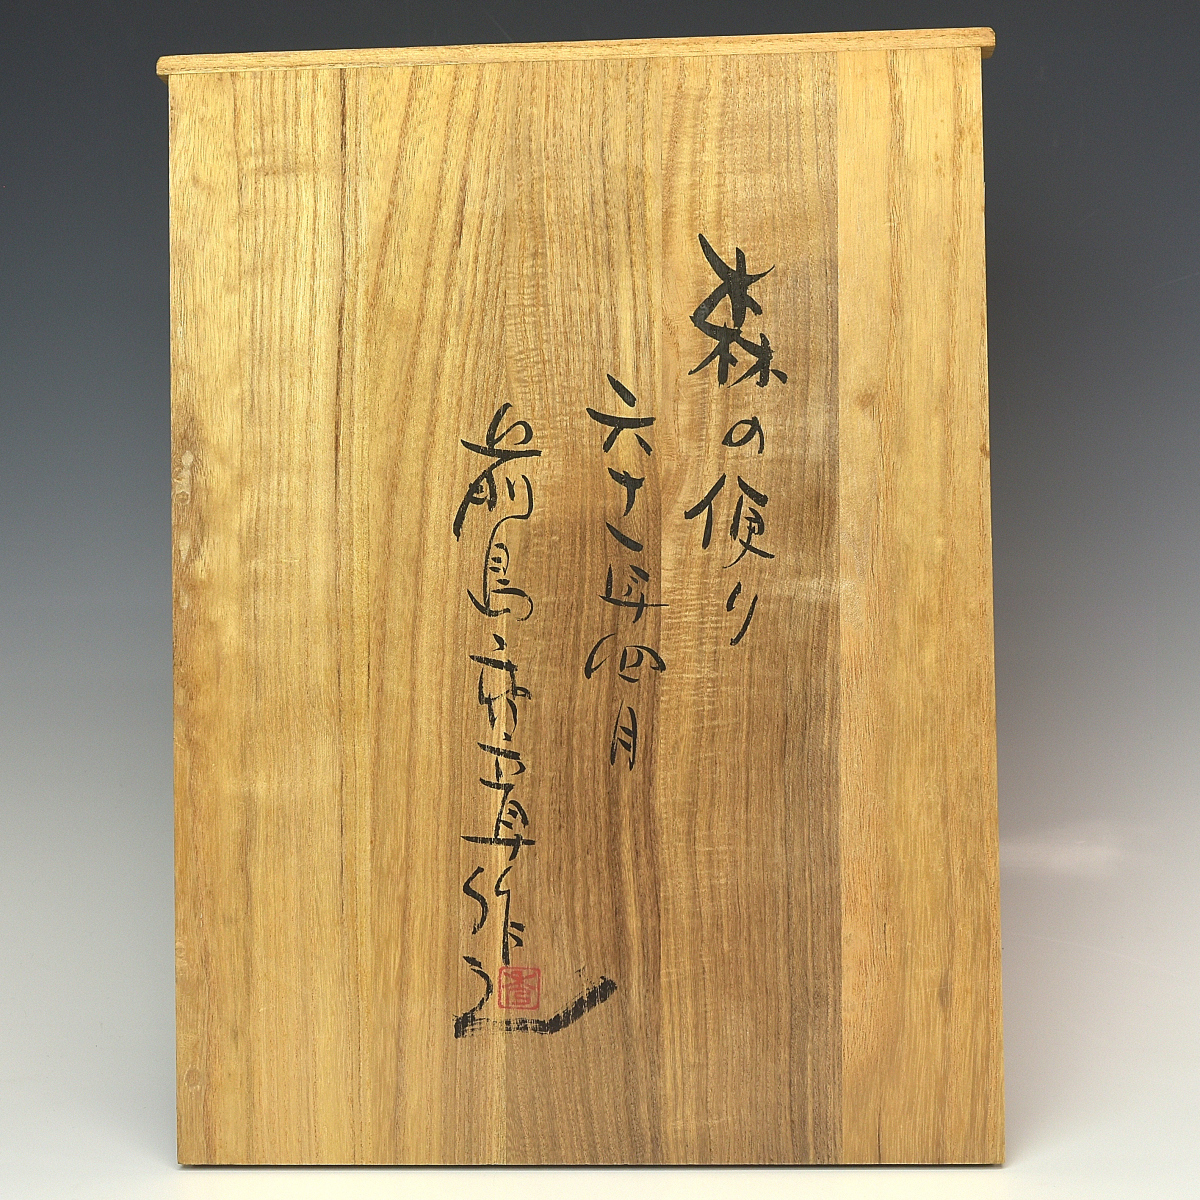 森の便り
六十一年四月
前島秀章作之